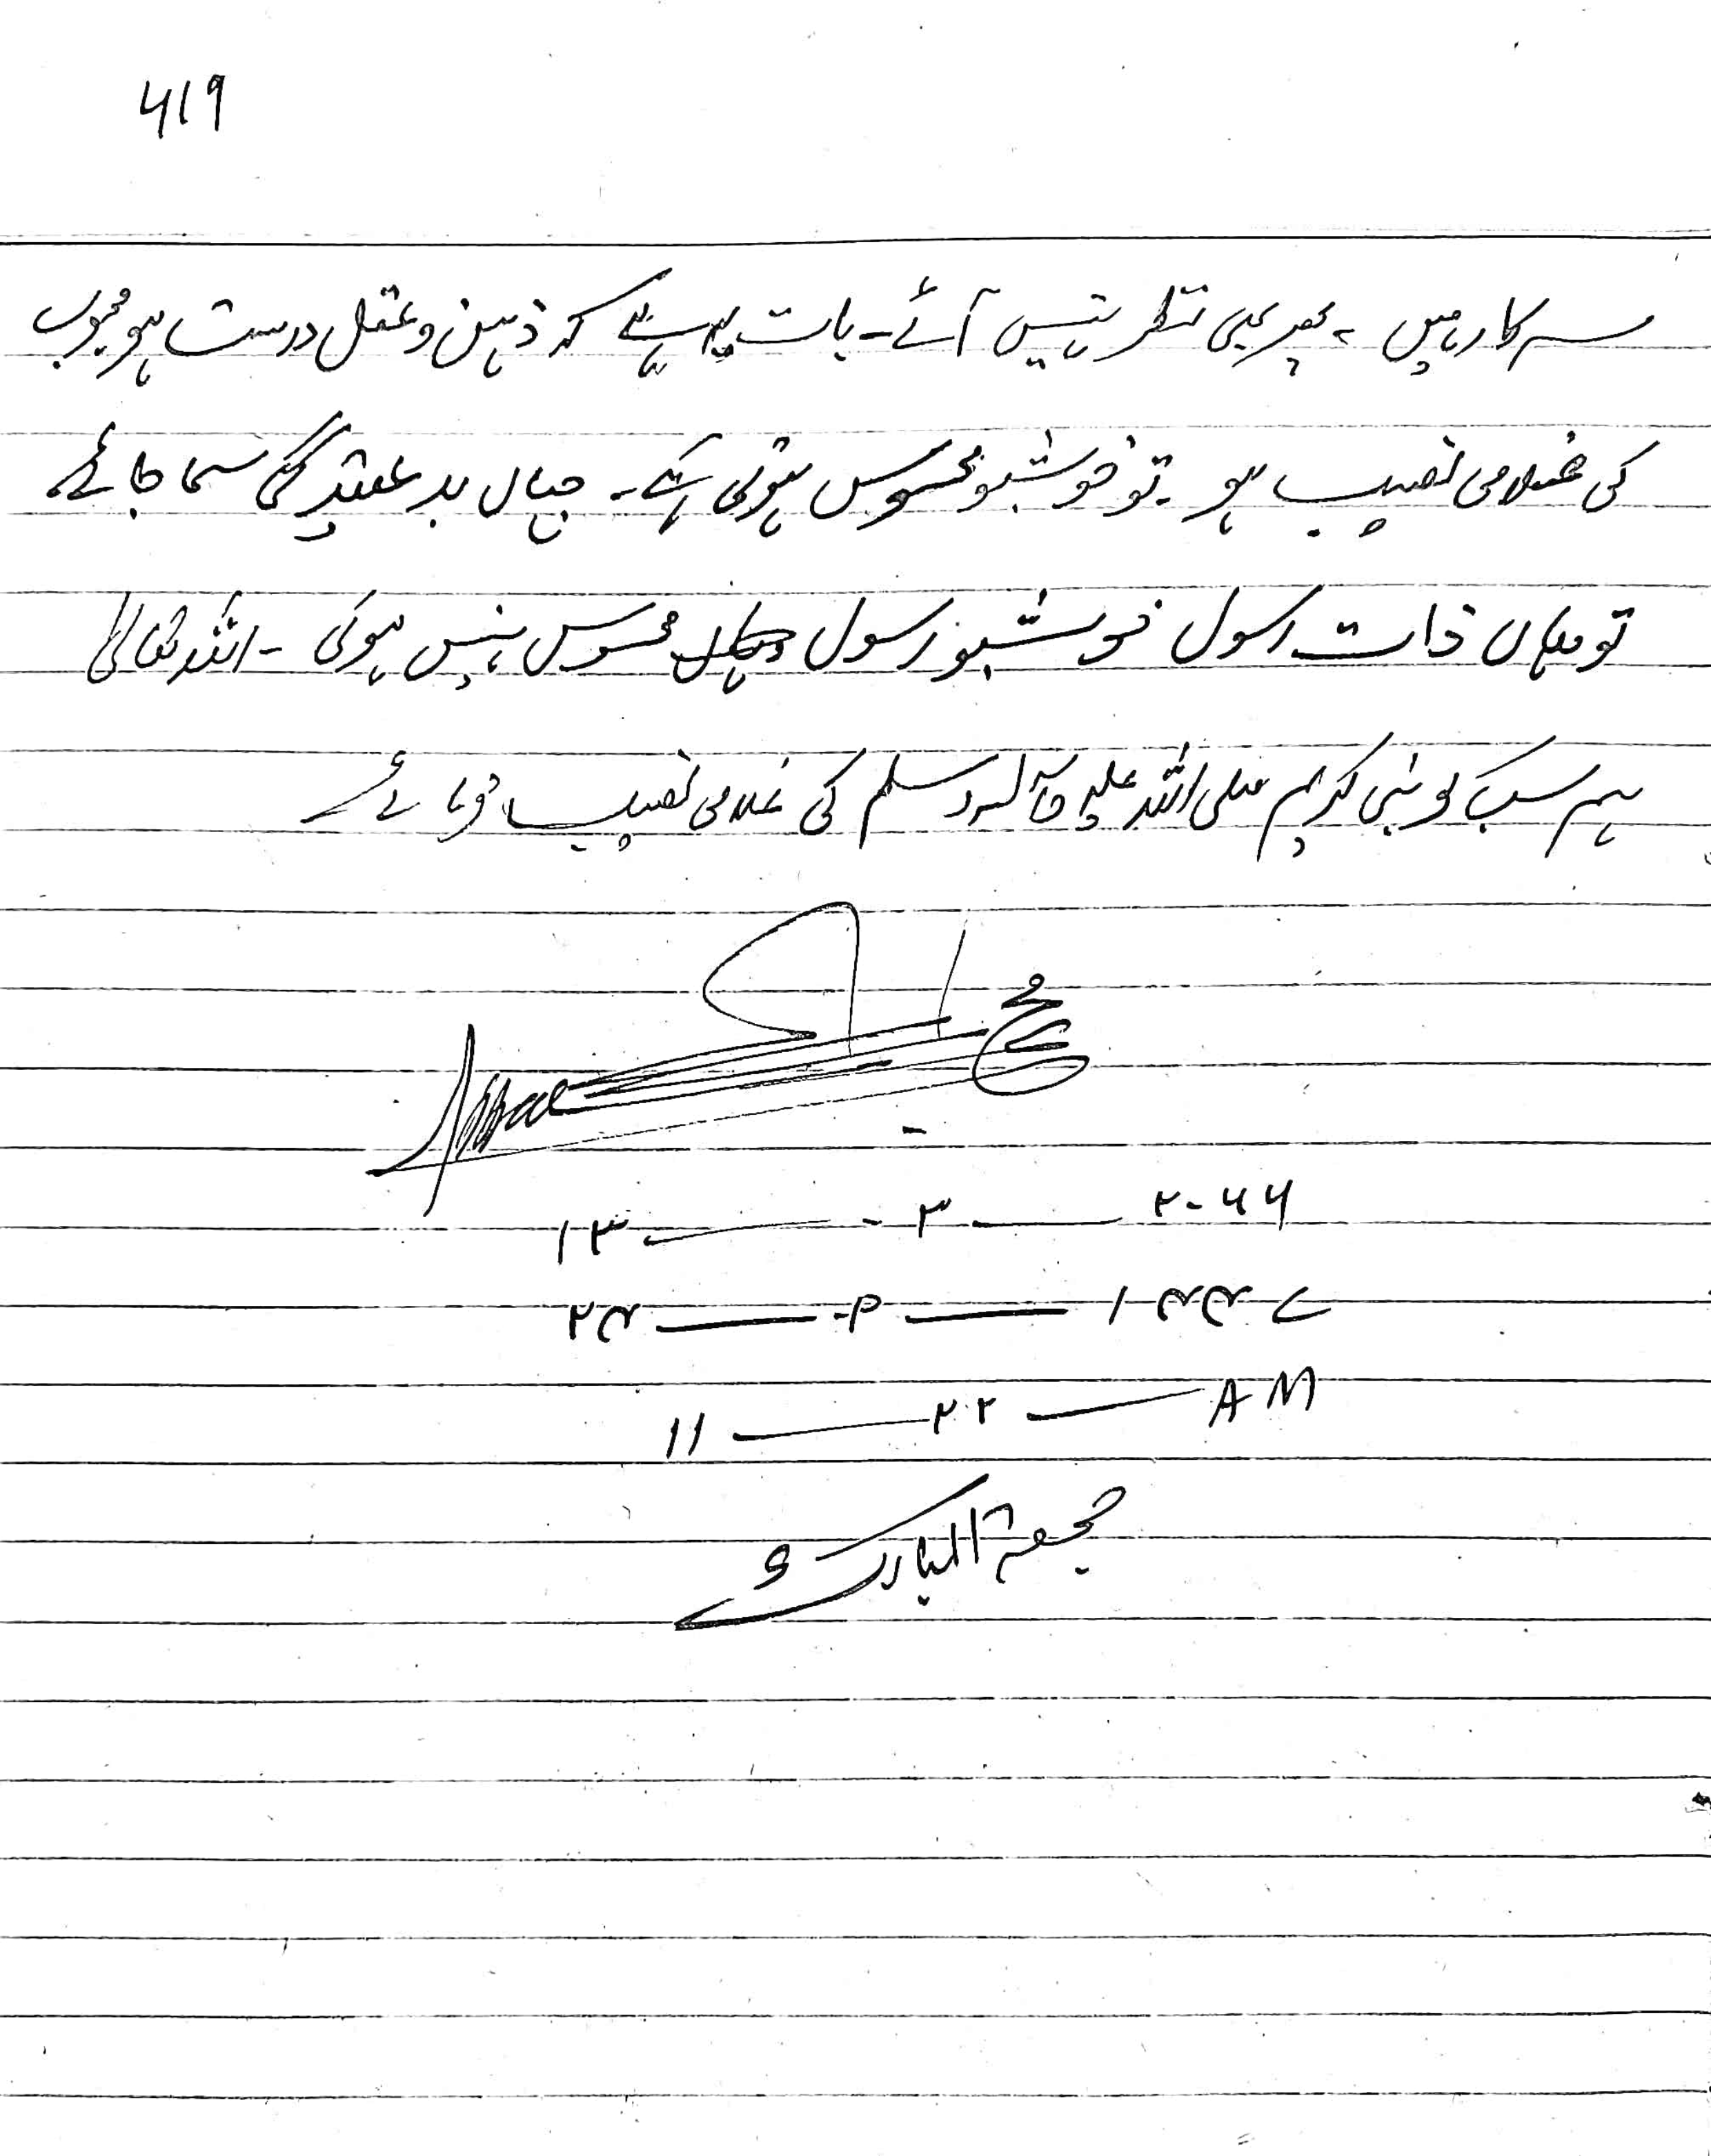 ۶۱۹
سرکار ہیں ۔ پھر بھی نظر نہیں آئے ۔ بات یہ ہے کہ ذہن و عقل درست ہو محبوب
کی غلامی نصیب ہو ۔ تو خوشبو محسوس ہوتی ہے ۔ جہاں بد عقیدگی سما جائے
تو وہاں ذات رسول خوشبو رسول محسوس نہیں ہوگی ۔ اللہ تعالیٰ
ہم سب کو نبی کریم صلی اللہ علیہ وآلہ وسلم کی غلامی نصیب فرمائے
۱۳ — ۰۳ — ۲۰۲۶
۲۳ — ۰۹ — ۱۴۴۷
۱۱ — ۲۲ — AM
جمعۃ المبارک